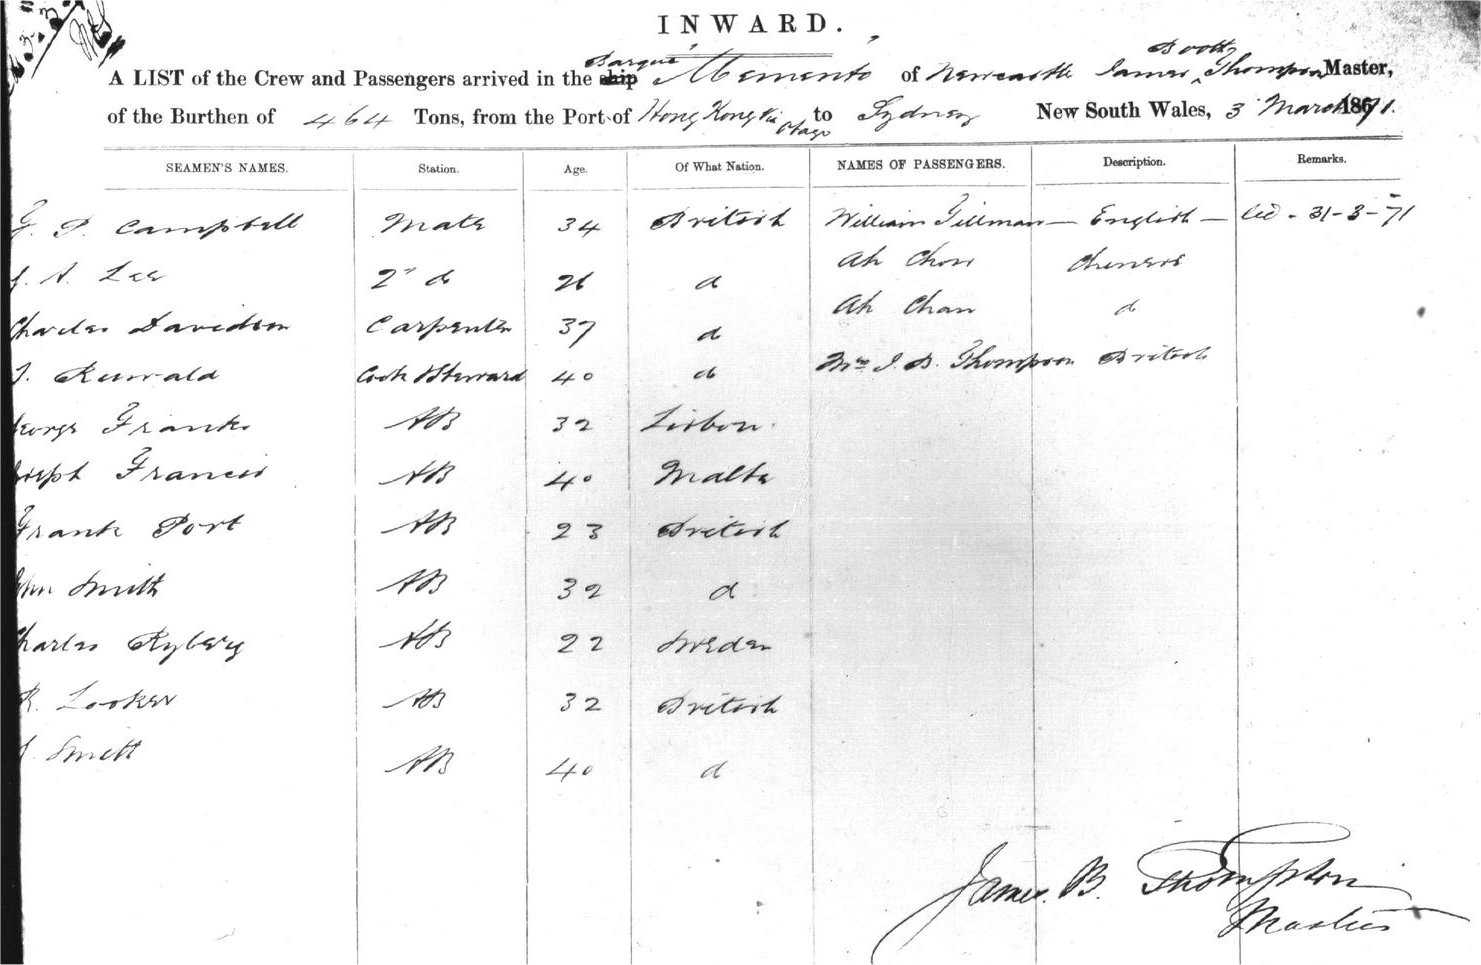 INWARD.
Barque Booth
A LIST of the Crew and Passengers arrived in the ship Memento of Newcastle James Thompson Master,
of the Burthen of 464 Tons, from the Port of Hong Kong via Otago to Sydney New South Wales, 3 March 1871.
SEAMEN'S NAMES. Station. Age. Of What Nation. NAMES OF PASSENGERS. Description. Remarks.
G. P. Campbell Mate 34 British William Gillman — English — 31-3-71
A. Lee 2nd do 26 d Ah Chow Chinese
Charles Davidson Carpenter 37 d Ah Chan d
Ruwald Cook & Steward 40 d Mrs J. B. Thompson British
George Franks AB 32 Lisbon.
Joseph Francis AB 40 Malta
Frank Port AB 23 British
John Smith AB 32 d
Charles Ryberg AB 22 Sweden
R. Looker AB 32 British
Smith AB 40 d
James. B. Thompson
Master